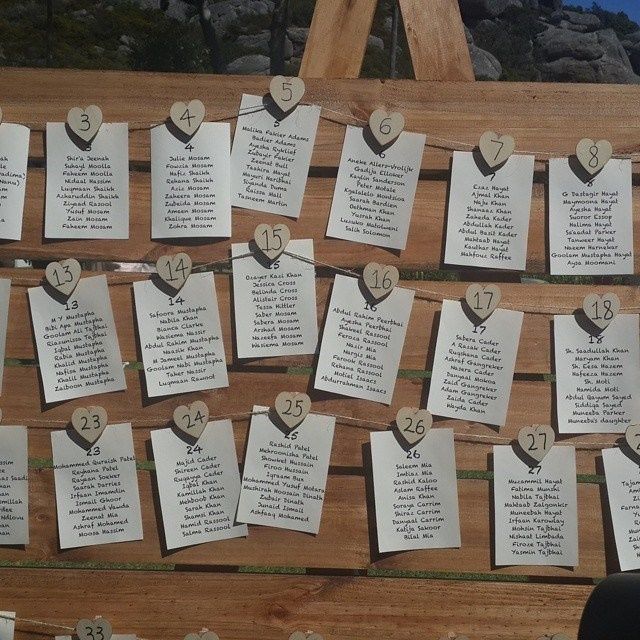 3
Shir'a Jeenah
Suhayl Moolla
Nidaal Nassim
Luqmaan Shaikh
Ashraruddin Shaikh
Ziyaad Rasool
Yusuf Mosam
Zain Mosam
Faheem Mosam
4
4
Julie Mosam
Fowzia Mosam
Hafiz Shaikh
Rehana Shaikh
Aziz Mosam
Zaheera Mosam
Zubeida Mosam
Ameen Mosam
Khalique Mosam
Zohra Mosam
5
5
Malika Fakier Adams
Badier Adams
Ayesha Rykllief
Zubayr Fakier
Zeenat Bull
Tashira Mayat
Mayuri Narthai
Raissa Adam
Tasneem Martin
6
Aneke Allers-Vrolijk
Gadija Ellokei
Kevin Sanderson
Peter Motale
Kgalalelo Montsioa
Saarah Bardien
Ottman Khan
Yusrah Khan
Lusuko Matolweni
Salih Solomon
7
Ejaz Hayat
Ajmal Khan
Naju Khan
Shanaaz Khan
Zahida Kader
Abdul Kader
Abdul Basit Kader
Mahtaab Hayat
Kauthar Hayat
Mahfouz Raffee
8
G Dastagir Hayat
Maymoona Hayat
Ayesha Hayat
Suoror Essop
Halima Hayat
Sa'aadat Parker
Tanweer Hayat
Naseem Harnekar
Goolam Mustapha Hayat
Aysa Moomani
13
13
M Y Mustapha
Bibi Apa Mustapha
Goolam Ali Tajbhai
Riasunissa Tajbhai
Iqbal Mustapha
Rabia Mustapha
Khalid Mustapha
Nafisa Mustapha
Khalil Mustapha
Zaiboon Mustapha
14
14
Safoora Mustapha
Nabila Khan
Bianca Clarke
Waseema Nassir
Abdul Rahim Mustapha
Naasir Khan
M Jameel Mustapha
Goolam Nabi Mustapha
Taher Nassir
Luqmaan Rawoot
15
Ozayer Kazi Khan
Jessica Cross
Belinda Cross
Alistair Cross
Tessa Hitler
Saber Mosam
Sabera Mosam
Arshad Mosam
Nazeefa Mosam
Waseema Mosam
16
16
Abdul Rahim Peerbhai
Ayesha Peerbhai
Shakeel Rassool
Feroza Mia
Nasir Mia
Nargis Mia
Farouk Rassool
Rehana Rassool
Motiel Isaacs
Abdurrahman Isaacs
17
17
Sabera Cader
A Razak Cader
Ruqshana Cader
Ashraf Gangreker
Nazera Cader
Danyaal Mokoa
Zaid Gangreker
Adam Gangreker
Zaida Cader
Wayda Khan
18
18
Sh. Saadullah Khan
Maryam Khan
Sh. Eesa Nazeem
Nafeeza Nazeem
Sh. Moti
Hamida Moti
Abdul Qayum Sayed
Siddiqa Sayed
Muneeba Parker
Muneeba's daughter
23
23
Mohammed Quraish Patel
Reyhana Patel
Rayaan Soeker
Saarah Serries
Irfaan Imamdin
Ismail Ghoor
Mohamed Vawda
Zeenat Mia
Ashraf Mohamed
Moosa Hassim
24
24
Majid Cader
Shireen Cader
Ruqayya Cader
Iqbal Khan
Kamillah Khan
Mehboob Khan
Sarah Khan
Shamsi Khan
Hamid Rassool
Salma Rassool
25
25
Rashid Patel
Mehroonisha Patel
Showket Hussain
Firoz Hussain
Igraam Bux
Mohammed Yusuf Motara
Mushtak Hoosain Dinath
Zubair Dinath
Junaid Ismail
Ashfaaq Mohamed
26
26
Saleem Mia
Imtiaz Mia
Rashid Kaloo
Aslam Raffee
Anisa Khan
Soraya Carrim
Shiraz Carrim
Danyaal Carrim
Katija Sakoor
Bilal Mia
27
27
Muzammil Hayat
Fatima Munshi
Nabila Tajbhai
Mahtaab Zalgonkir
Muneebah Hayat
Irfaan Karowlay
Mohsin Tajbhai
Nishaat Limbada
Firoze Tajbhai
Yasmin Tajbhai
33